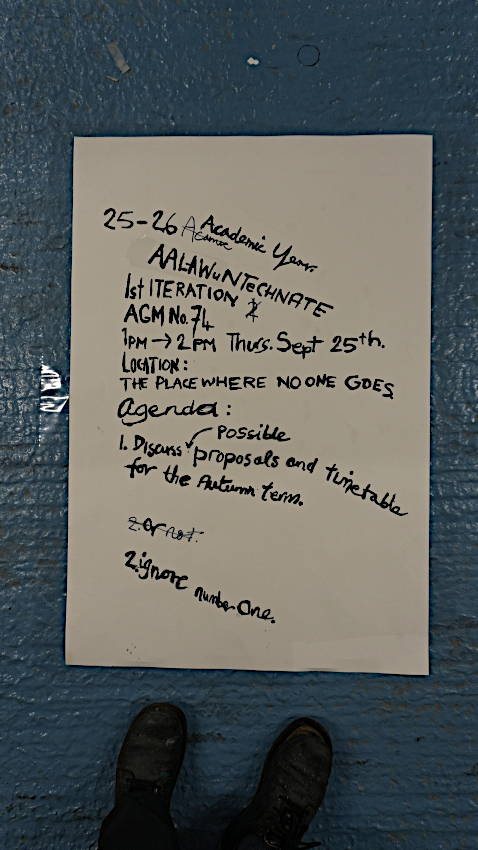 25-26 Academic Year.
AALAWuNTECHNATE
1st ITERATION
AGM No. 74
1PM → 2PM Thurs. Sept 25th.
LOCATION:
THE PLACE WHERE NO ONE GOES
agenda:
possible
1. Discuss proposals and timetable
for the Autumn term.
2. or not.
2. ignore number one.